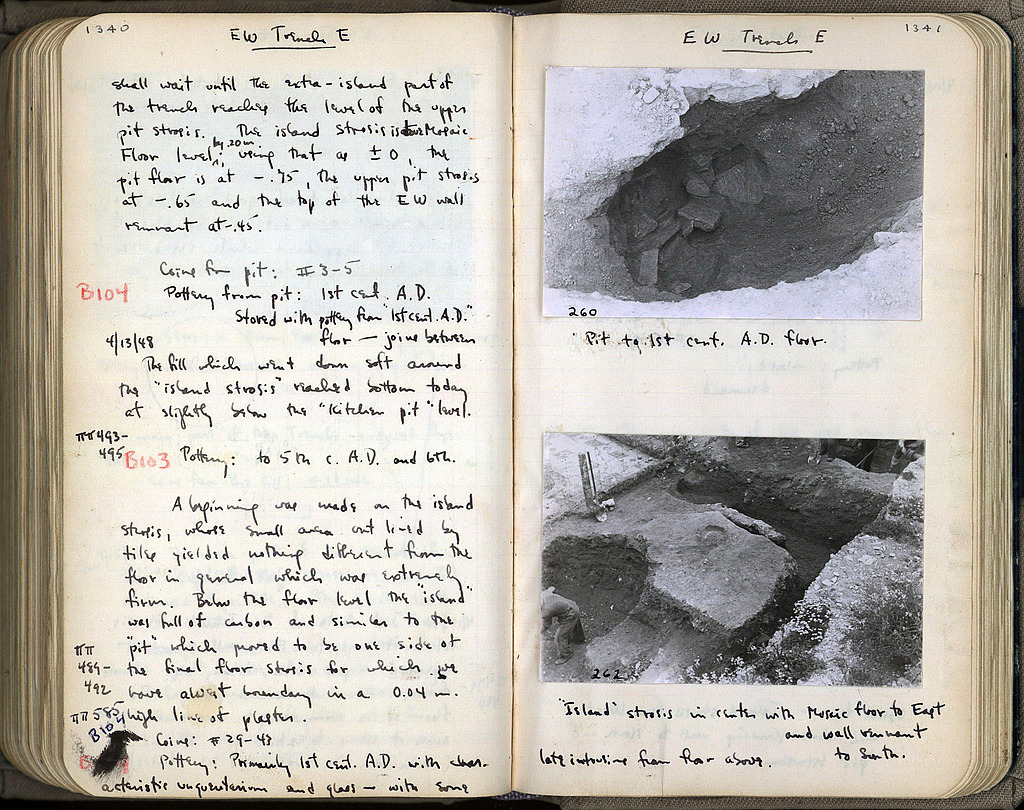 1340
EW Trench E
shall wait until the extra-island part of
the trench reaches the level of the upper
pit strosis. The island strosis is below Mosaic
Floor level by .20 m, using that as ± 0, the
pit floor is at -.75, the upper pit strosis
at -.65 and the top of the EW wall
remnant at -.45.
Coins from pit: # 3-5
B104 Pottery from pit: 1st cent. A.D.
Stored with pottery from "1st cent. A.D."
floor — joins between
4/13/48
The fill which went down soft around
the "island strosis" reached bottom today
at slightly below the "Kitchen pit" level.
ππ 493-
495 B103 Pottery: to 5th c. A.D. and 6th.
A beginning was made on the island
strosis, whose small area outlined by
tiles yielded nothing different from the
floor in general which was extremely
firm. Below the floor level the "island"
was full of carbon and similar to the
"pit" which proved to be one side of
ππ
489-
492
the final floor strosis for which we
have a west boundary in a 0.04 m.
high line of plaster.
ππ 585
B104
Coins: # 29-43
Pottery: Primarily 1st cent. A.D. with char-
acteristic unguentarium and glass — with some
1341
EW Trench E
260
Pit to 1st cent. A.D. floor.
262
"Island" strosis in center with Mosaic floor to East
and wall remnant
to South.
late intrusive from floor above.